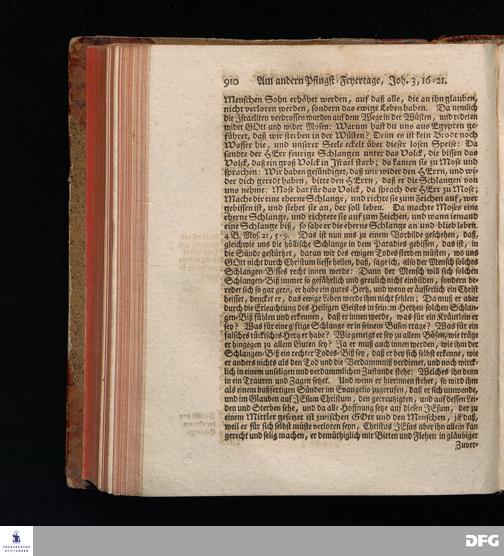 910 Am andern Pfingst-Feyertage, Joh. 3, 16-21.
Menschen Sohn erhöhet werden, auf daß alle, die an ihn glauben,
nicht verloren werden, sondern das ewige Leben haben. Da nemlich
die Israeliten verdrossen wurden auf dem Wege in der Wüsten, und redeten
wider GOtt und wider Mosen: Warum hast du uns aus Egypten ge-
führet, daß wir sterben in der Wüsten? Denn es ist kein Brodt noch
Wasser hie, und unserer Seele eckelt über dieser losen Speise: Da
sandte der HErr feurige Schlangen unter das Volck, die bissen das
Volck, daß ein groß Volck in Israel starb; da kamen sie zu Mose und
sprachen: Wir haben gesündiget, daß wir wider den HErrn, und wi-
der dich geredt haben, bitte den HErrn, daß er die Schlangen von
uns nehme: Mose bat für das Volck, da sprach der HErr zu Mose;
Mache dir eine eherne Schlange, und richte sie zum Zeichen auf, wer
gebissen ist, und siehet sie an, der soll leben. Da machte Moses eine
eherne Schlange, und richtete sie auf zum Zeichen, und wann iemand
eine Schlange biß, so sahe er die eherne Schlange an und blieb leben.
4 B. Mos. 21, 5-9. Das ist nun uns zu einem Vorbilde geschehen, daß,
gleichwie uns die höllische Schlange in dem Paradies gebissen, das ist, in
die Sünde gestürtzet, daran wir des ewigen Todes sterben müsten, wo uns
GOtt nicht durch Christum liesse heilen, daß, sage ich, also der Mensch solches
Schlangen-Bisses recht innen werde: Dann der Mensch will sich solchen
Schlangen-Biß immer so gefährlich und greulich nicht einbilden, sondern be-
redet sich so gar gern, er habe ein gutes Hertz, und wenn er äusserlich ein Christ
heisset, dencket er, das ewige Leben werde ihm nicht fehlen; Da muß er aber
durch die Erleuchtung des Heiligen Geistes in seinem Hertzen solchen Schlan-
gen-Biß fühlen und erkennen, daß er innen werde, was für ein Kräutlein er
sey? Was für eine giftige Schlange er in seinem Busen trage? Was für ein
falsches tückisches Hertz er habe? Wie geneigt er sey zu allem Bösen, wie träge
er hingegen zu allem Guten sey? Ja er muß auch innen werden, wie ihm der
Schlangen-Biß ein rechter Todes-Biß sey, daß er bey sich selbst erkenne, wie
er anders nichts als den Tod und die Verdammniß verdienet, und noch wirck-
lich in einem unseligen und verdammlichen Zustande stehe: Welches ihn denn
in ein Trauren und Zagen setzet. Und wenn er hierinnen stehet, so wird ihm
als einem bußfertigen Sünder im Evangelio zugerufen, daß er sich umwende,
und im Glauben auf JEsum Christum, den gecreutzigten, und auf dessen Lei-
den und Sterben sehe, und da alle Hoffnung setze auf diesen JEsum, der zu
einem Mittler gesetzet ist zwischen GOtt und den Menschen, ja daß,
weil er für sich selbst müste verloren seyn, Christus JEsus aber ihn allein kan
gerecht und selig machen, er demüthiglich mit Bitten und Flehen in gläubiger
Zuver-
FRANCKESCHE
STIFTUNGEN
DFG